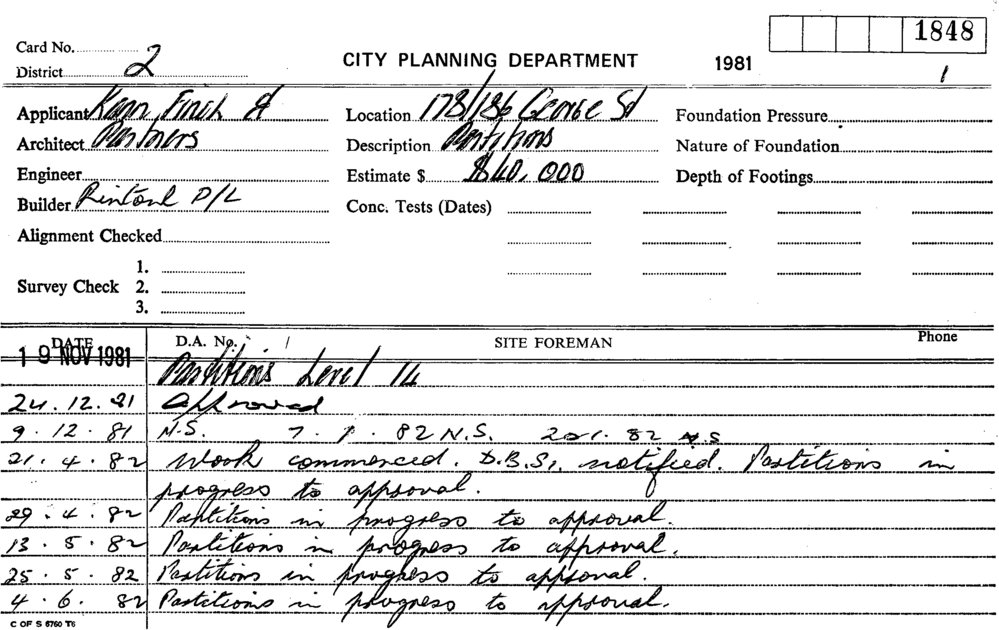 1848
Card No. 2
CITY PLANNING DEPARTMENT 1981
District 1
Applicant Kann, Finch & Location 178/186 George St Foundation Pressure
Architect Partners Description Partitions Nature of Foundation
Engineer Estimate $ $40,000 Depth of Footings
Builder Rintoul P/L Conc. Tests (Dates)
Alignment Checked
1.
Survey Check 2.
3.
DATE D.A. No. SITE FOREMAN Phone
19 NOV 1981
Partitions Level 14
24.12.81 Approved
9.12.81 N.S. 7.1.82 N.S. 20.1.82 N.S
21.4.82 Work commenced. D.B.S. notified. Partitions in
progress to approval.
29.4.82 Partitions in progress to approval.
13.5.82 Partitions in progress to approval.
25.5.82 Partitions in progress to approval.
4.6.82 Partitions in progress to approval.
C OF S 6760 T6